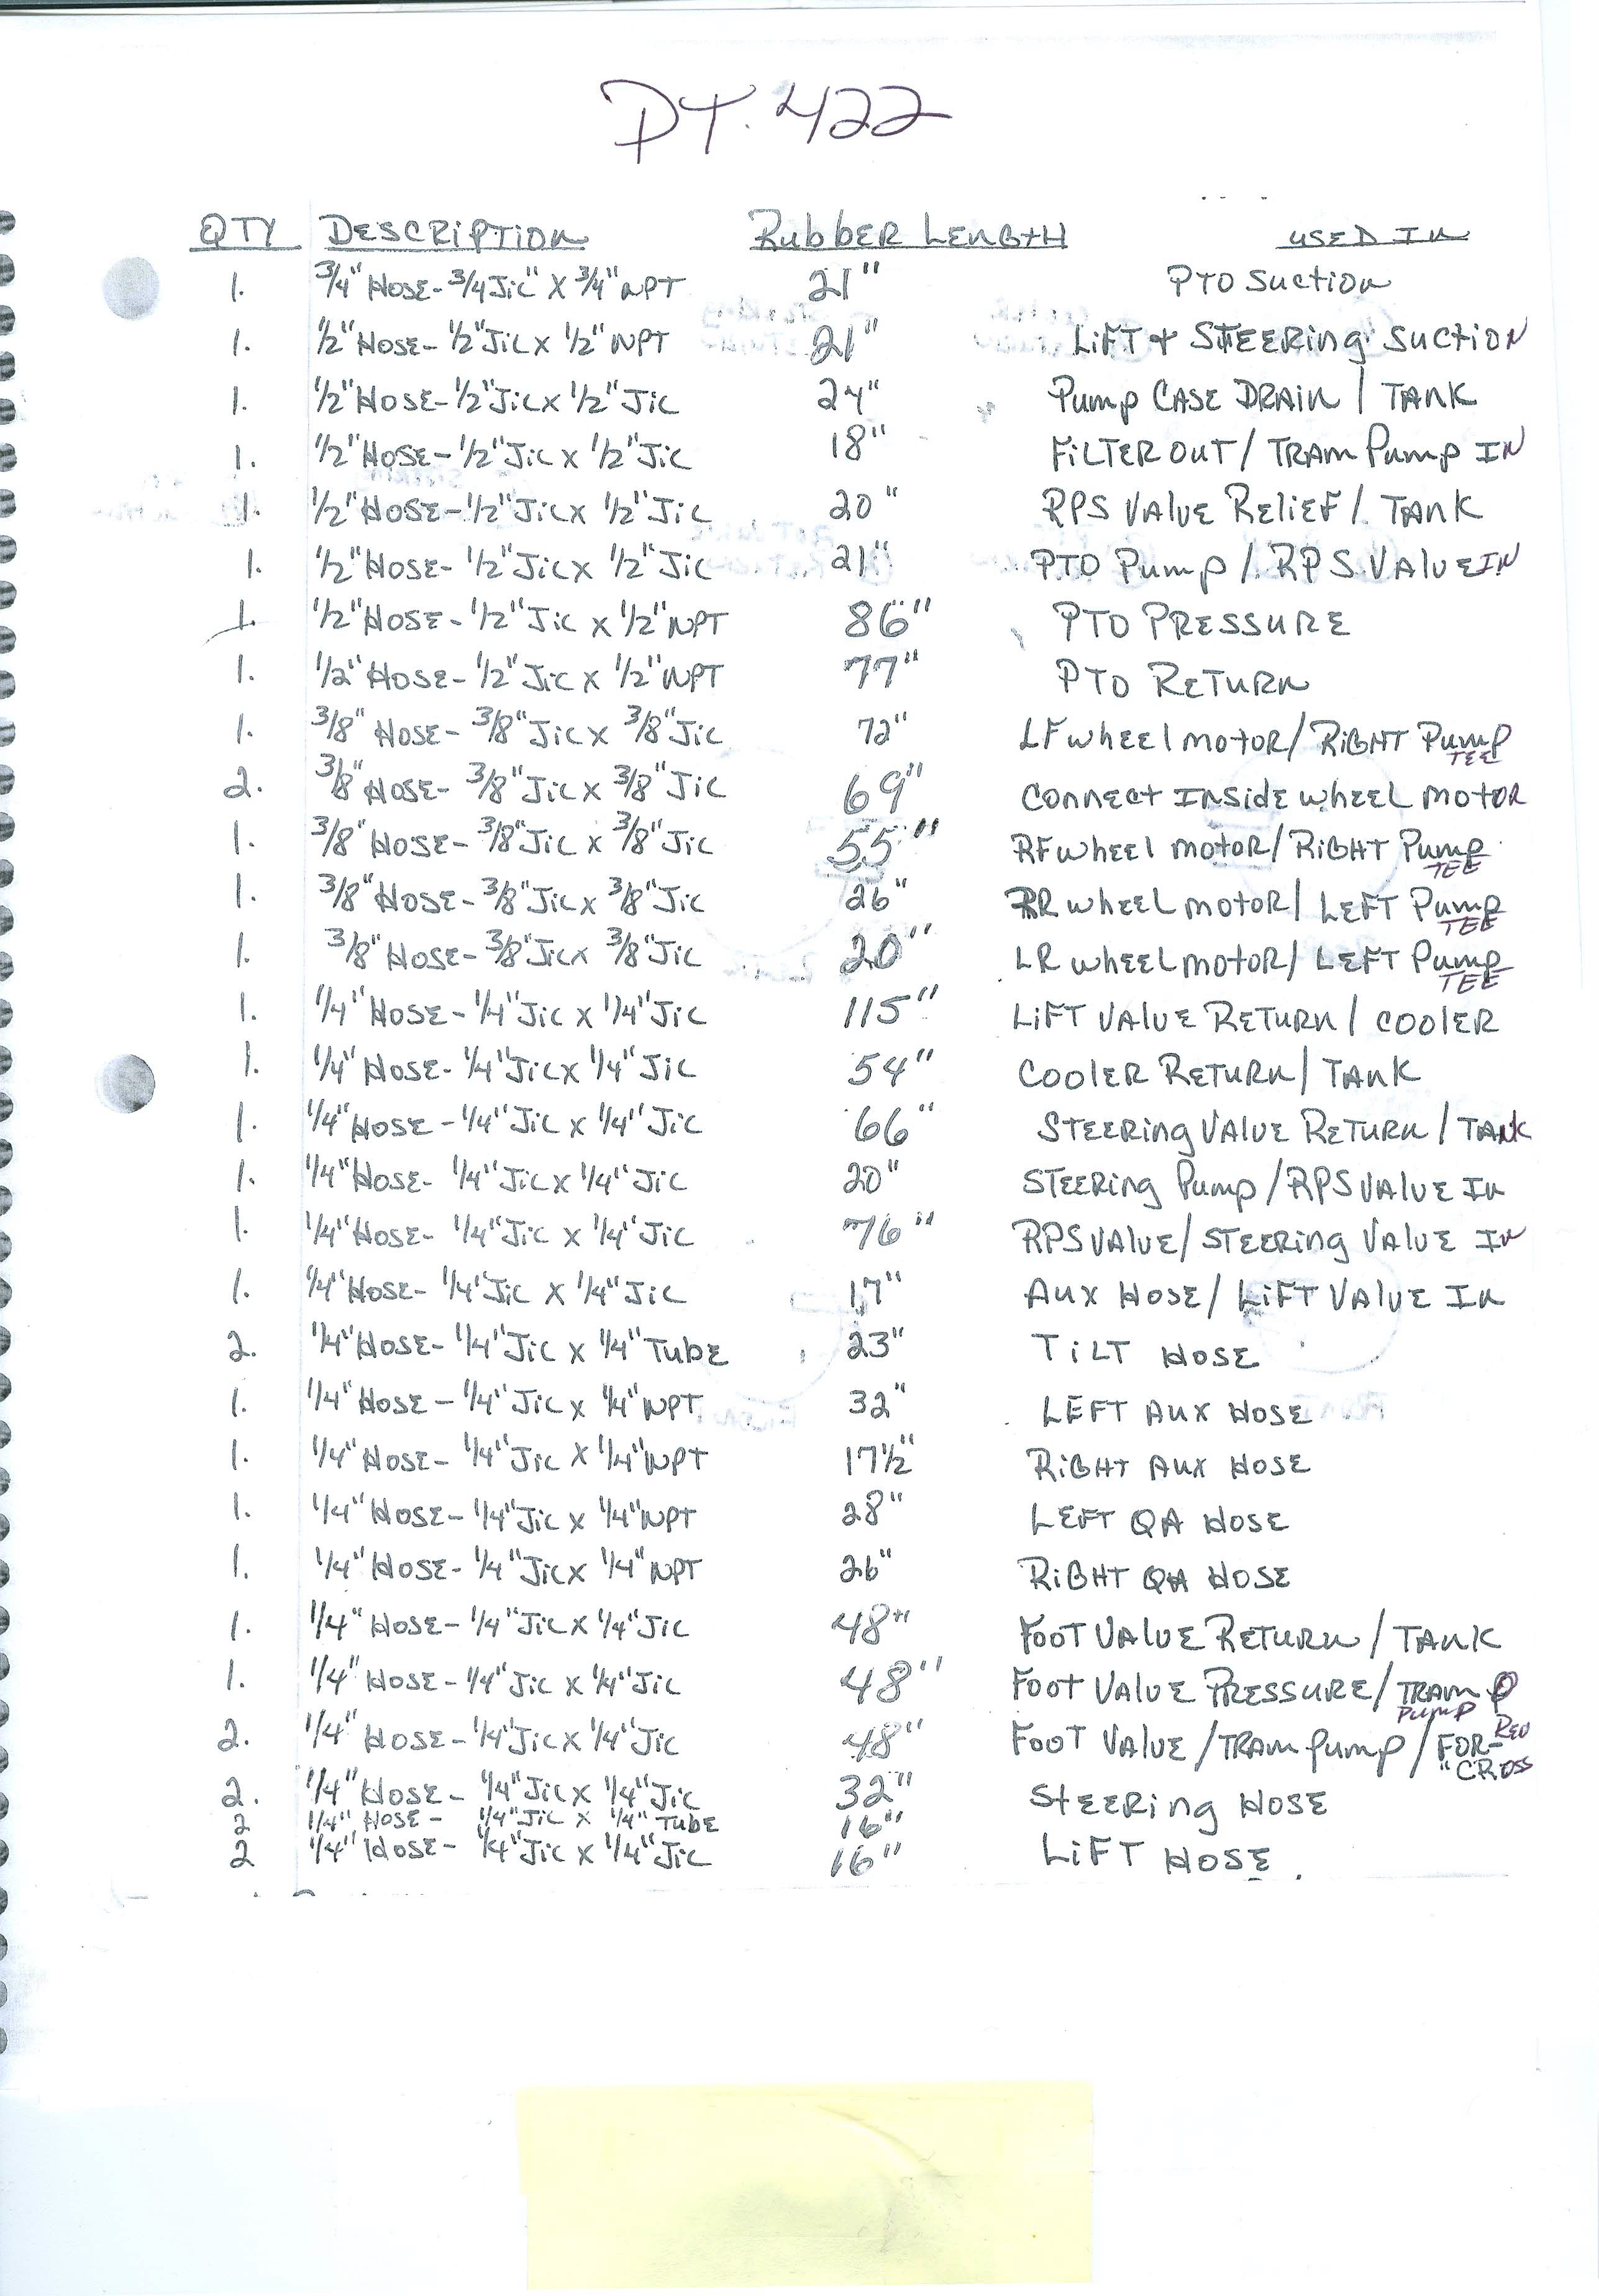 PT. 422
QTY DESCRIPTION Rubber LENGTH USED IN
1. 3/4" HOSE- 3/4 Jic" X 3/4" NPT 21" PTO SUCTION
1. 1/2" HOSE- 1/2" Jic X 1/2" NPT 21" LIFT + STEERING SUCTION
1. 1/2" HOSE- 1/2" Jic X 1/2" Jic 24" Pump CASE DRAIN / TANK
1. 1/2" HOSE- 1/2" Jic X 1/2" Jic 18" FILTER OUT / TRAM Pump IN
1. 1/2" HOSE- 1/2" Jic X 1/2" Jic 20" RPS VALVE RELIEF / TANK
1. 1/2" HOSE- 1/2" Jic X 1/2" Jic 21" PTO Pump / RPS VALVE IN
1. 1/2" HOSE- 1/2" Jic X 1/2" NPT 86" PTO PRESSURE
1. 1/2" HOSE- 1/2" Jic X 1/2" NPT 77" PTO RETURN
1. 3/8" HOSE- 3/8" Jic X 3/8" Jic 72" LF WHEEL MOTOR / RIGHT Pump
TEE
2. 3/8" HOSE- 3/8" Jic X 3/8" Jic 69" CONNECT INSIDE WHEEL MOTOR
1. 3/8" HOSE- 3/8" Jic X 3/8" Jic 55" RF WHEEL MOTOR / RIGHT Pump
TEE
1. 3/8" HOSE- 3/8" Jic X 3/8" Jic 26" RR WHEEL MOTOR / LEFT Pump
TEE
1. 3/8" HOSE- 3/8" Jic X 3/8" Jic 20" LR WHEEL MOTOR / LEFT Pump
TEE
1. 1/4" HOSE- 1/4" Jic X 1/4" Jic 115" LIFT VALVE RETURN / COOLER
1. 1/4" HOSE- 1/4" Jic X 1/4" Jic 54" COOLER RETURN / TANK
1. 1/4" HOSE- 1/4" Jic X 1/4" Jic 66" STEERING VALVE RETURN / TANK
1. 1/4" HOSE- 1/4" Jic X 1/4" Jic 20" STEERING Pump / RPS VALVE IN
1. 1/4" HOSE- 1/4" Jic X 1/4" Jic 76" RPS VALVE / STEERING VALVE IN
1. 1/4" HOSE- 1/4" Jic X 1/4" Jic 17" AUX HOSE / LIFT VALVE IN
2. 1/4" HOSE- 1/4" Jic X 1/4" TUBE 23" TILT HOSE
1. 1/4" HOSE- 1/4" Jic X 1/4" NPT 32" LEFT AUX HOSE
1. 1/4" HOSE- 1/4" Jic X 1/4" NPT 17½" RIGHT AUX HOSE
1. 1/4" HOSE- 1/4" Jic X 1/4" NPT 28" LEFT QA HOSE
1. 1/4" HOSE- 1/4" Jic X 1/4" NPT 26" RIGHT QA HOSE
1. 1/4" HOSE- 1/4" Jic X 1/4" Jic 48" FOOT VALVE RETURN / TANK
1. 1/4" HOSE- 1/4" Jic X 1/4" Jic 48" FOOT VALVE PRESSURE / TRAM P
PUMP
2. 1/4" HOSE- 1/4" Jic X 1/4" Jic 48" FOOT VALVE / TRAM Pump / FOR- REV
"CROSS
2. 1/4" HOSE- 1/4" Jic X 1/4" Jic 32" STEERING HOSE
2 1/4" HOSE- 1/4" Jic X 1/4" TUBE 16"
2 1/4" HOSE- 1/4" Jic X 1/4" Jic 16" LIFT HOSE